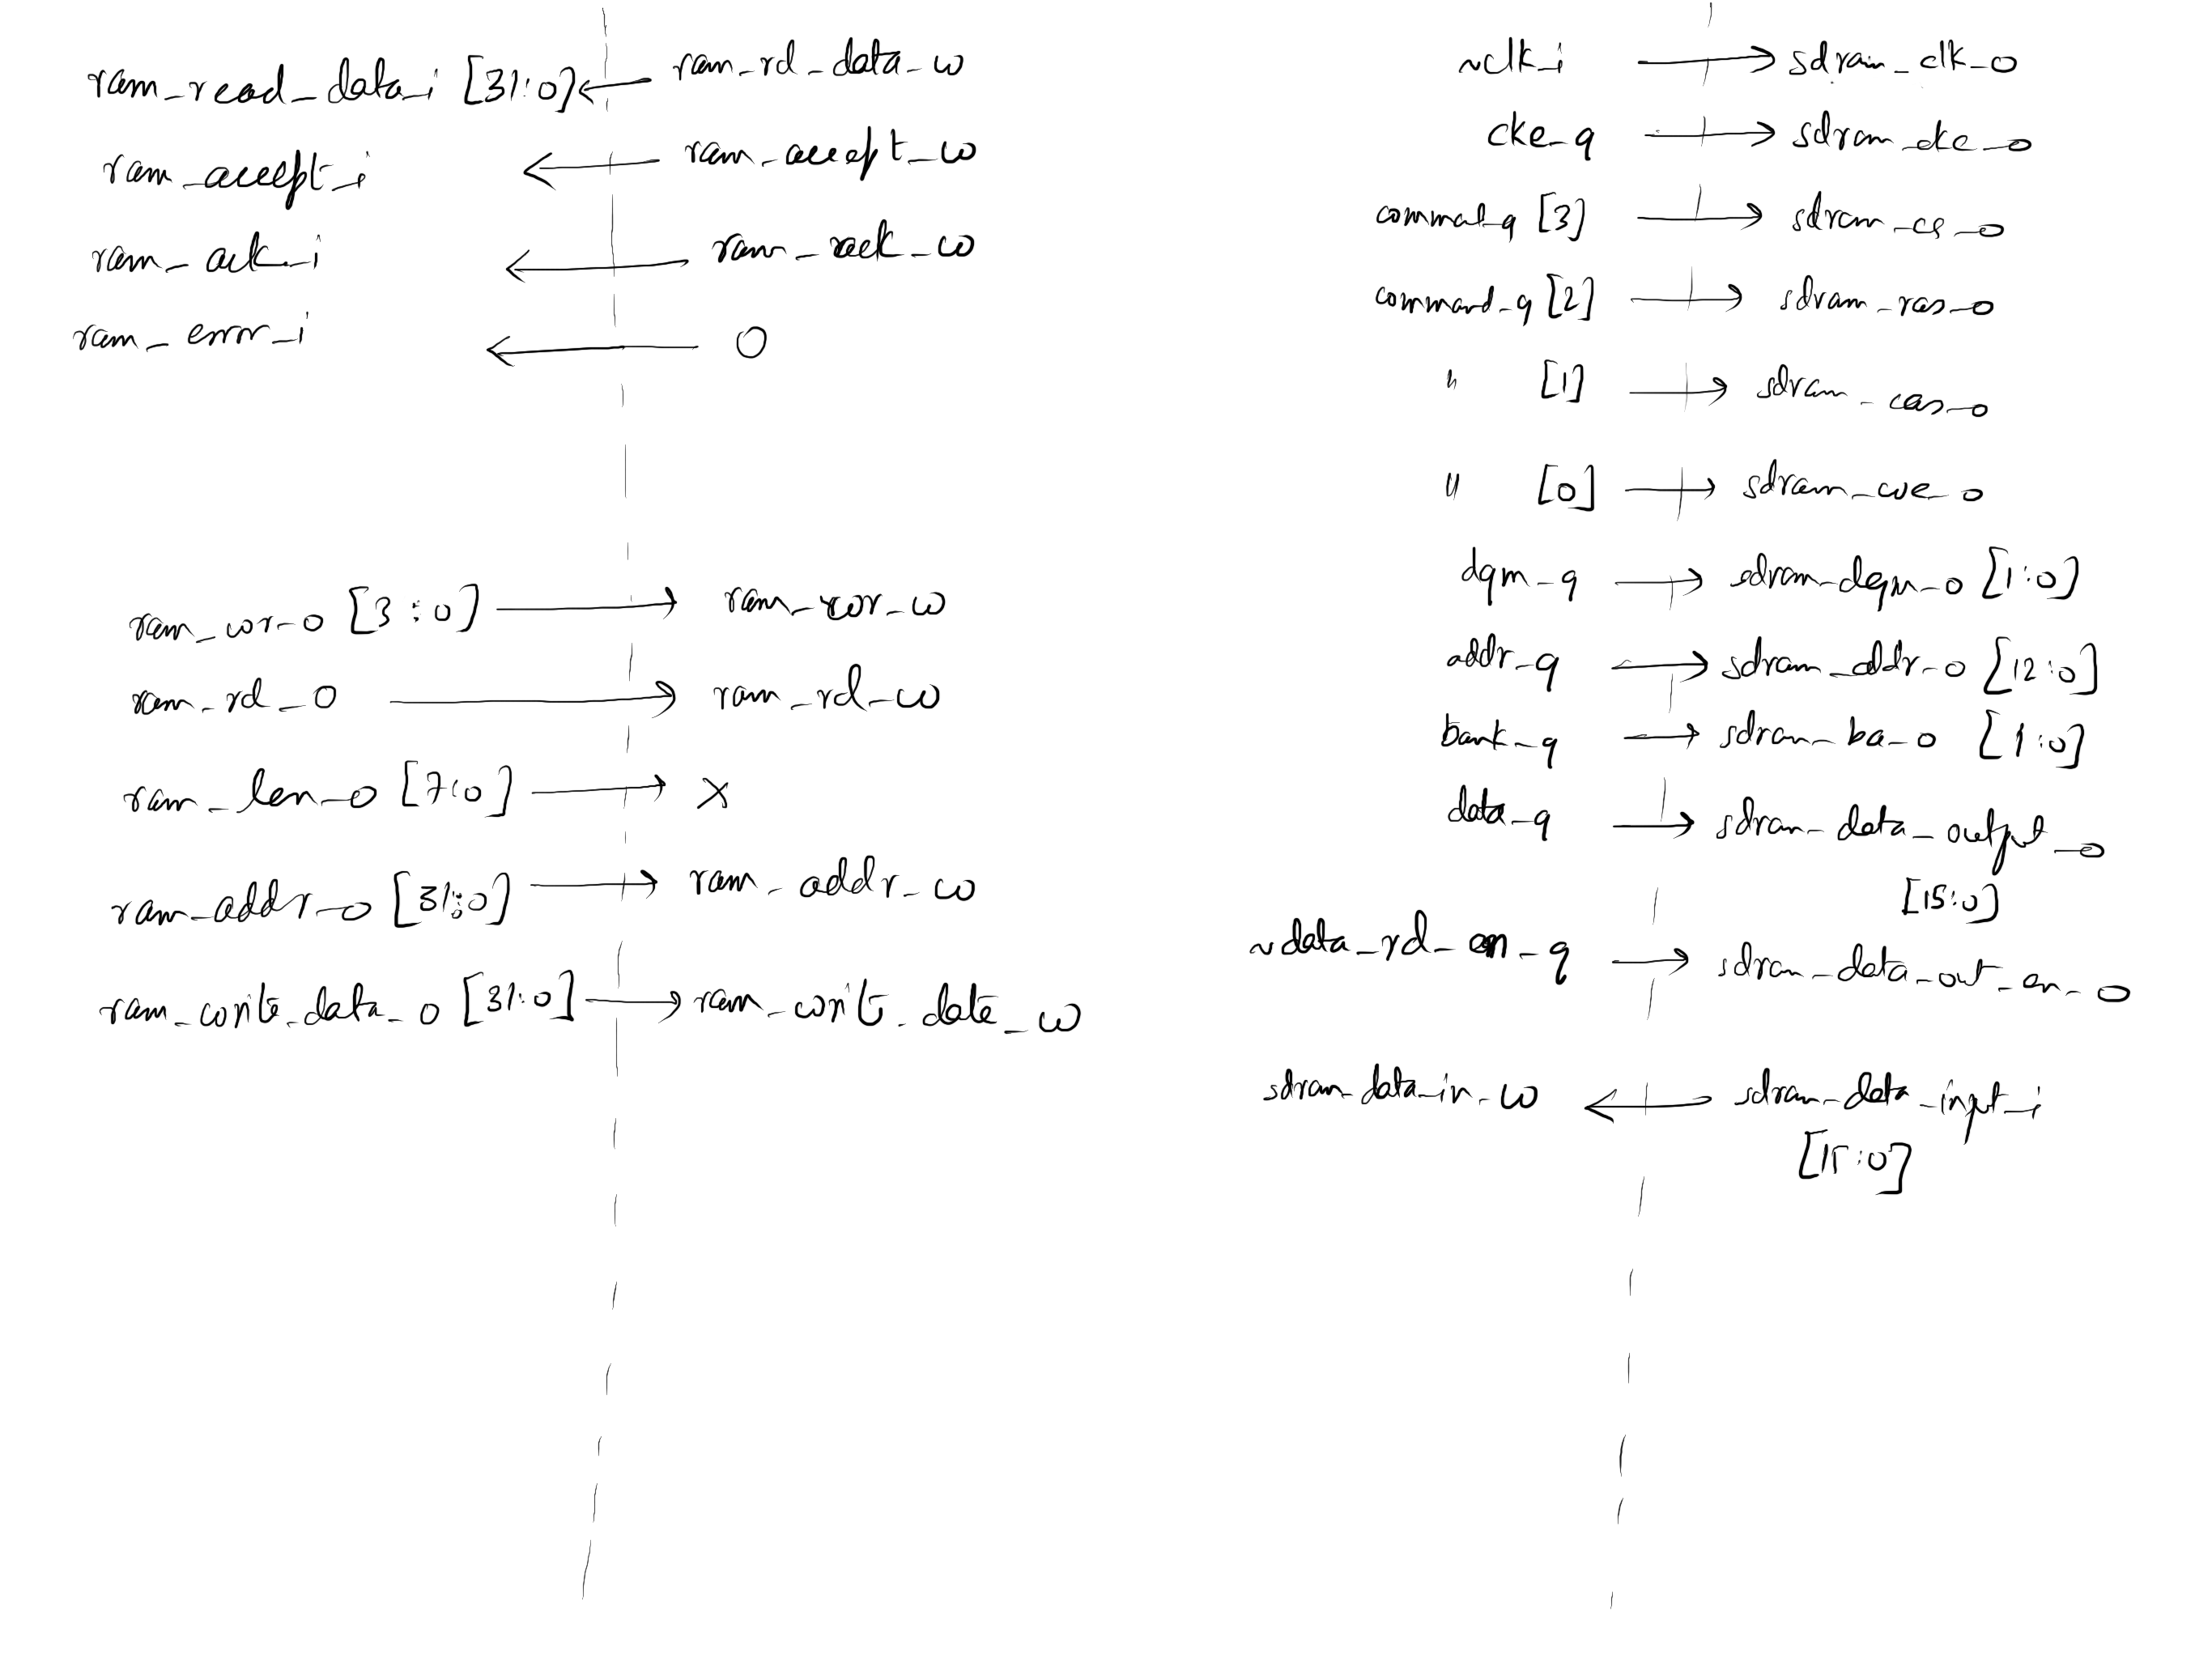 ram_read_data_i [31:0] ← ram_rd_data_w
ram_accept_i ← ram_accept_w
ram_ack_i ← ram_ack_w
ram_error_i ← 0
ram_wr_o [3:0] → ram_wr_w
ram_rd_o → ram_rd_w
ram_len_o [7:0] → x
ram_addr_o [31:0] → ram_addr_w
ram_write_data_o [31:0] → ram_write_data_w
~clk_i → sdram_clk_o
cke_q → sdram_cke_o
command_q [3] → sdram_cs_o
command_q [2] → sdram_ras_o
" [1] → sdram_cas_o
" [0] → sdram_we_o
dqm_q → sdram_dqm_o [1:0]
addr_q → sdram_addr_o [12:0]
bank_q → sdram_ba_o [1:0]
data_q → sdram_data_output_o
[15:0]
~data_rd_en_q → sdram_data_out_en_o
sdram_data_in_w ← sdram_data_input_i
[15:0]